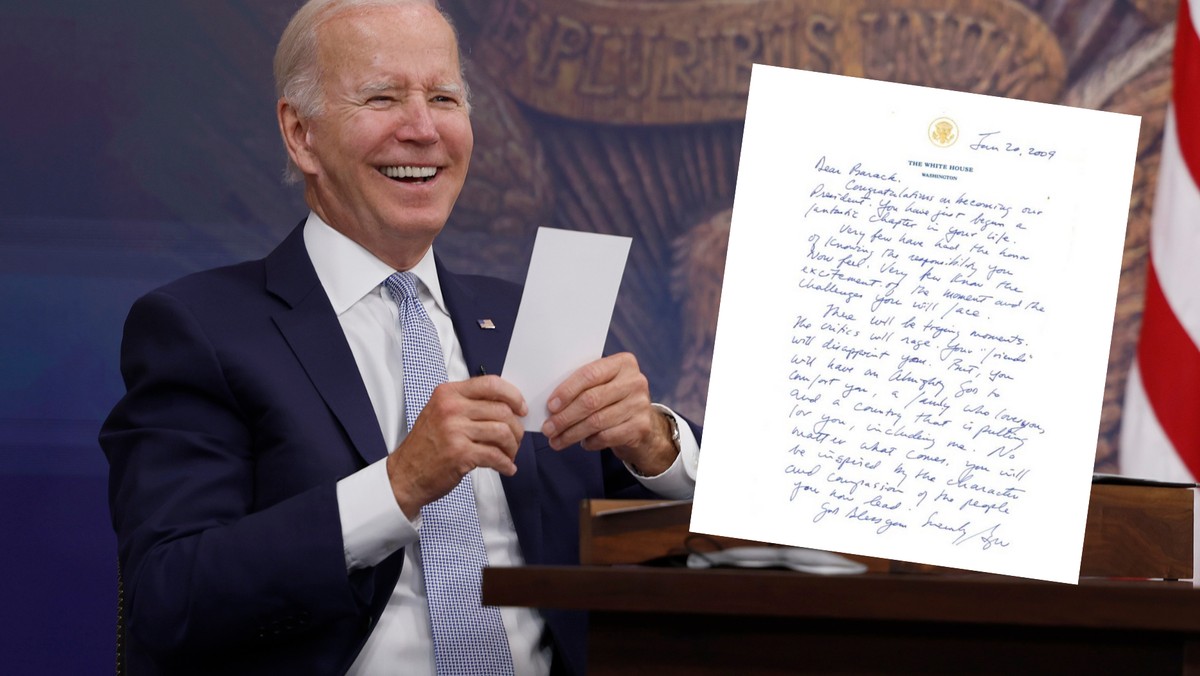 E PLURIBUS UNUM
Jan 20, 2009
THE WHITE HOUSE
WASHINGTON
Dear Barack,
Congratulations on becoming our
President. You have just begun a
fantastic chapter in your life.
Very few have had the honor
of knowing the responsibility you
now feel. Very few know the
excitement of the moment and the
challenges you will face.
There will be trying moments.
The critics will rage. Your "friends"
will disappoint you. But, you
will have an Almighty God to
comfort you, a family who loves you,
and a country that is pulling
for you, including me. No
matter what comes, you will
be inspired by the character
and compassion of the people
you now lead.
God bless you. Sincerely,